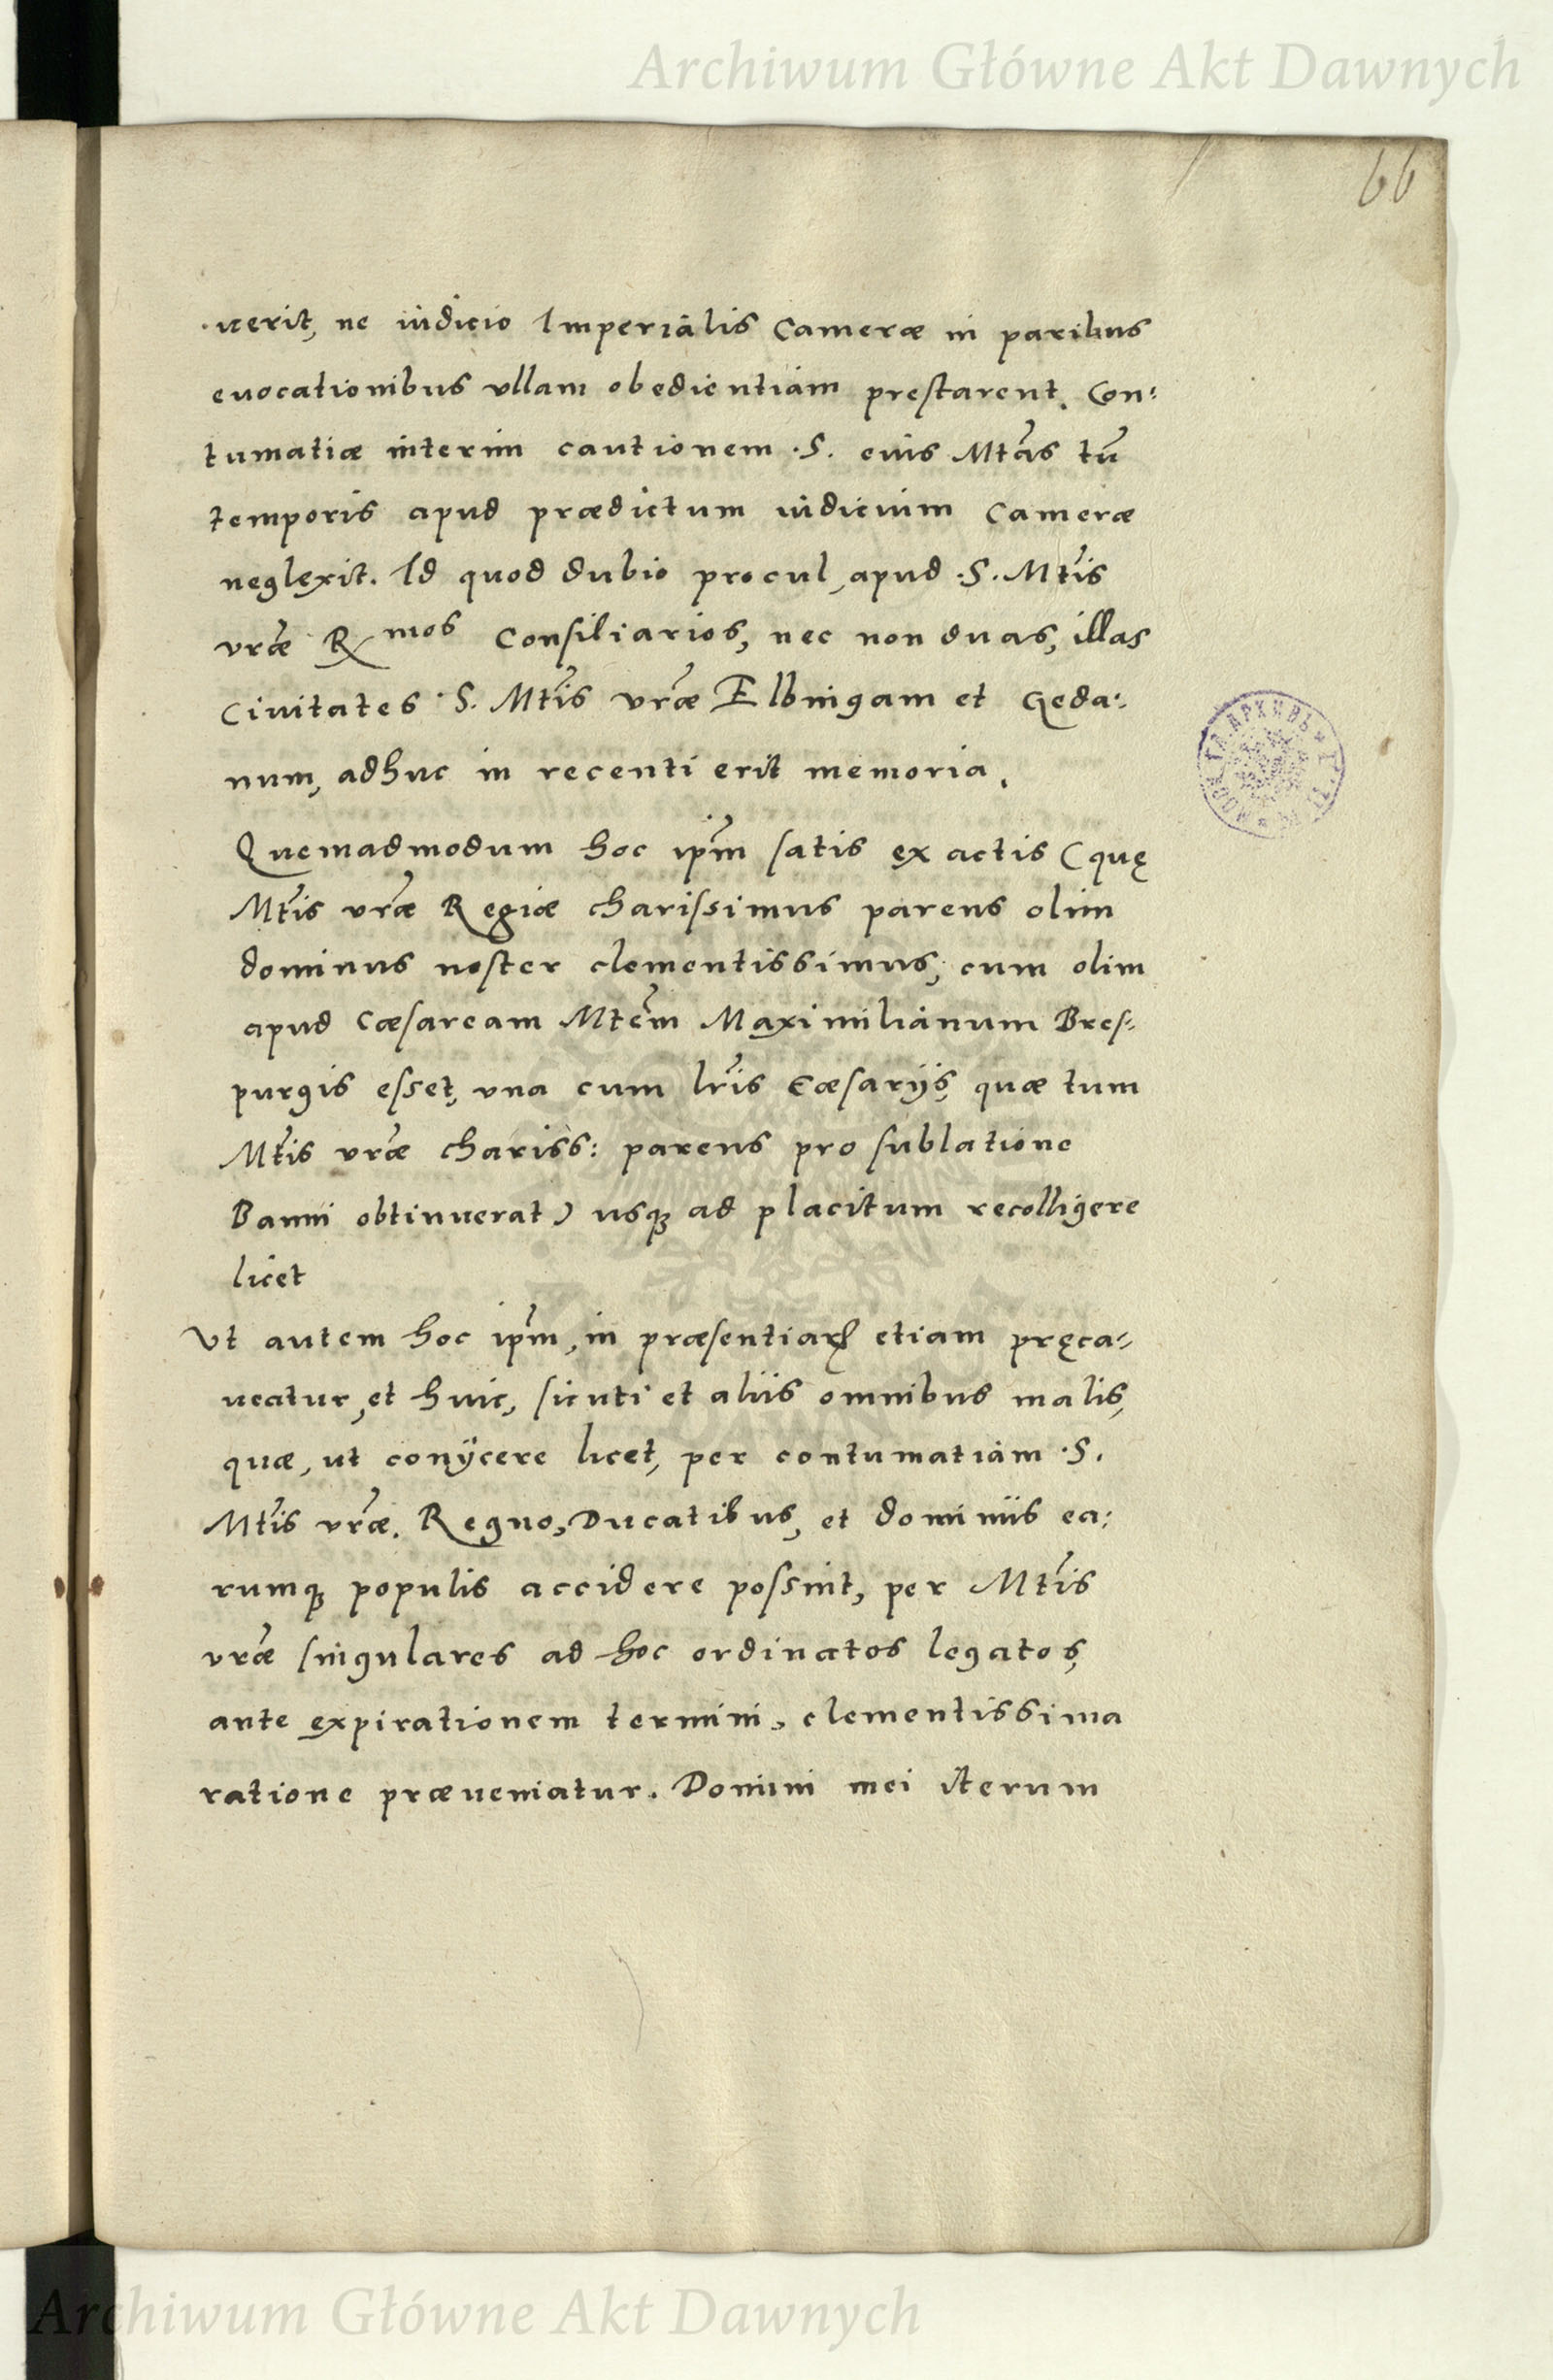 Archiwum Główne Akt Dawnych
66
uerit, ne iudicio Imperialis Cameræ in paribus
euocationibus vllam obedientiam prestarent. Con:
tumatiæ interim cautionem .S. eius Mtãs tũ
temporis apud prædictum iudicium Cameræ
neglexit. Id quod dubio procul, apud .S. Mtis
vrãe R mos Consiliarios, nec non duas, illas
Ciuitates .S. Mtis vrãe Elbingam et Geda:
num, adhuc in recenti erit memoria.
Quemadmodum hoc ipm̃ satis ex actis (quę
Mtis vrãe Regiæ charissimus parens olim
dominus noster clementissimus, cum olim
apud Cæsaream Mtem Maximilianum Bres-
purgis esset, vna cum lris Cæsarijs, quæ tum
Mtis vrãe chariss: parens pro sublatione
Banni obtinuerat) usqȝ ad placitum recolligere
licet
Vt autem hoc ipm̃, in præsentiarꝝ etiam pręca-
ueatur, et huic, sicuti et aliis omnibus malis,
quæ, ut conijcere licet, per contumatiam .S.
Mtis vrãe. Regno, Ducatibus, et dominiis ea:
rumqȝ populis accidere possint, per Mtis
vrãe singulares ad hoc ordinatos legatos,
ante expirationem termini, clementissima
ratione præueniatur. Domini mei iterum
Archiwum Główne Akt Dawnych